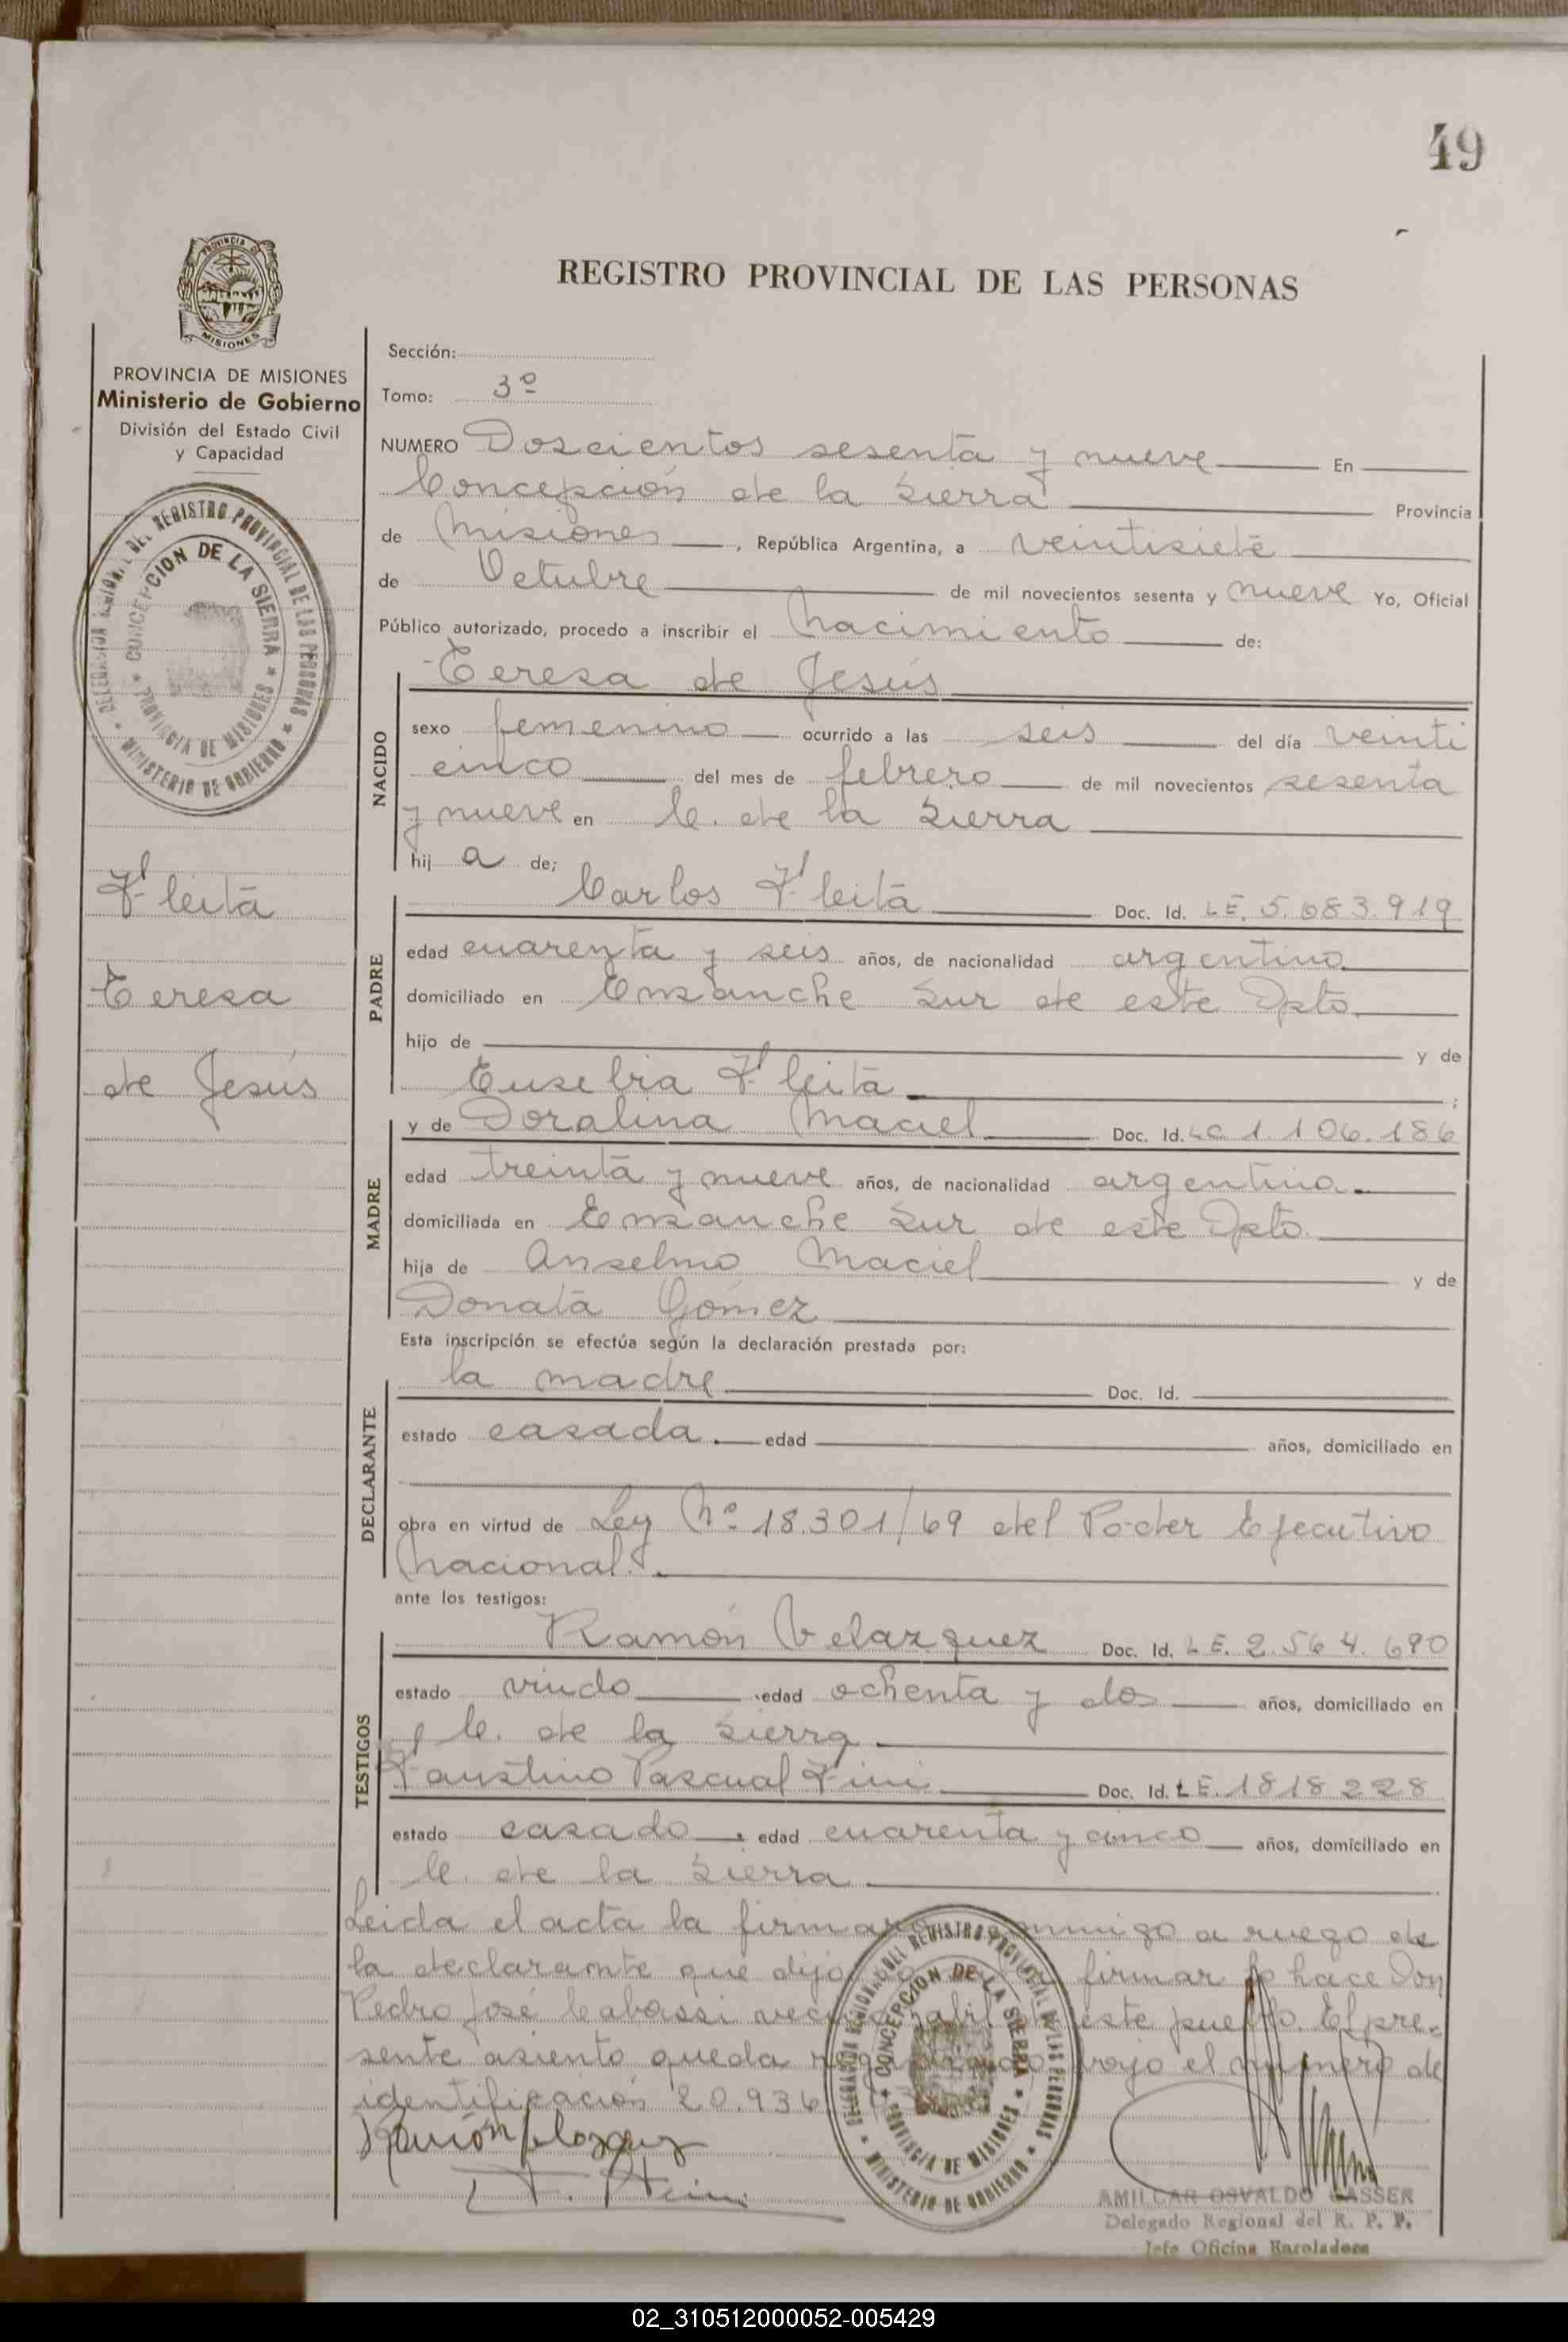 49
REGISTRO PROVINCIAL DE LAS PERSONAS
PROVINCIA DE MISIONES
PROVINCIA DE MISIONES
Ministerio de Gobierno
División del Estado Civil
y Capacidad
DELEGACION REGIONAL DEL REGISTRO PROVINCIAL DE LAS PERSONAS
CONCEPCION DE LA SIERRA
PROVINCIA DE MISIONES
MINISTERIO DE GOBIERNO
Fleita
Teresa
de Jesús
Sección:
Tomo: 3º
NUMERO Doscientos sesenta y nueve En
Concepción de la Sierra Provincia
de Misiones, República Argentina, a veintisiete
de Octubre de mil novecientos sesenta y nueve Yo, Oficial
Público autorizado, procedo a inscribir el Nacimiento de:
NACIDO
Teresa de Jesús
sexo femenino ocurrido a las seis del día veinti
cinco del mes de febrero de mil novecientos sesenta
y nueve en C. de la Sierra
hij a de;
PADRE
Carlos Fleita Doc. Id. LE. 5.683.919
edad cuarenta y seis años, de nacionalidad argentino
domiciliado en Ensanche Sur de este Dpto
hijo de y de
Eusebia Fleita ;
MADRE
y de Doralina Maciel Doc. Id. LC 1.106.186
edad treinta y nueve años, de nacionalidad argentina.
domiciliada en Ensanche Sur de este Dpto.
hija de Anselmo Maciel y de
Donata Gómez
Esta inscripción se efectúa según la declaración prestada por:
DECLARANTE
la madre Doc. Id.
estado casada. edad años, domiciliado en
obra en virtud de Ley Nº 18.301/69 del Poder Ejecutivo
Nacional.
ante los testigos:
TESTIGOS
Ramón Velazquez Doc. Id. LE. 2.564.690
estado viudo edad ochenta y dos años, domiciliado en
C. de la Sierra
Faustino Pascual Doc. Id. LE. 1818228
estado casado edad cuarenta y cinco años, domiciliado en
C. de la Sierra
Leida el acta la firman conmigo a ruego de
la declarante que dijo firmar lo hace Don
Pedro José este pueblo. El pre-
sente asiento queda bajo el número de
identificación 20.936
DELEGACION REGIONAL DEL REGISTRO PROVINCIAL DE LAS PERSONAS
CONCEPCION DE LA SIERRA
PROVINCIA DE MISIONES
MINISTERIO DE GOBIERNO
AMILCAR OSVALDO GASSER
Delegado Regional del R. P. P.
Jefe Oficina Enroladora
02_310512000052-005429